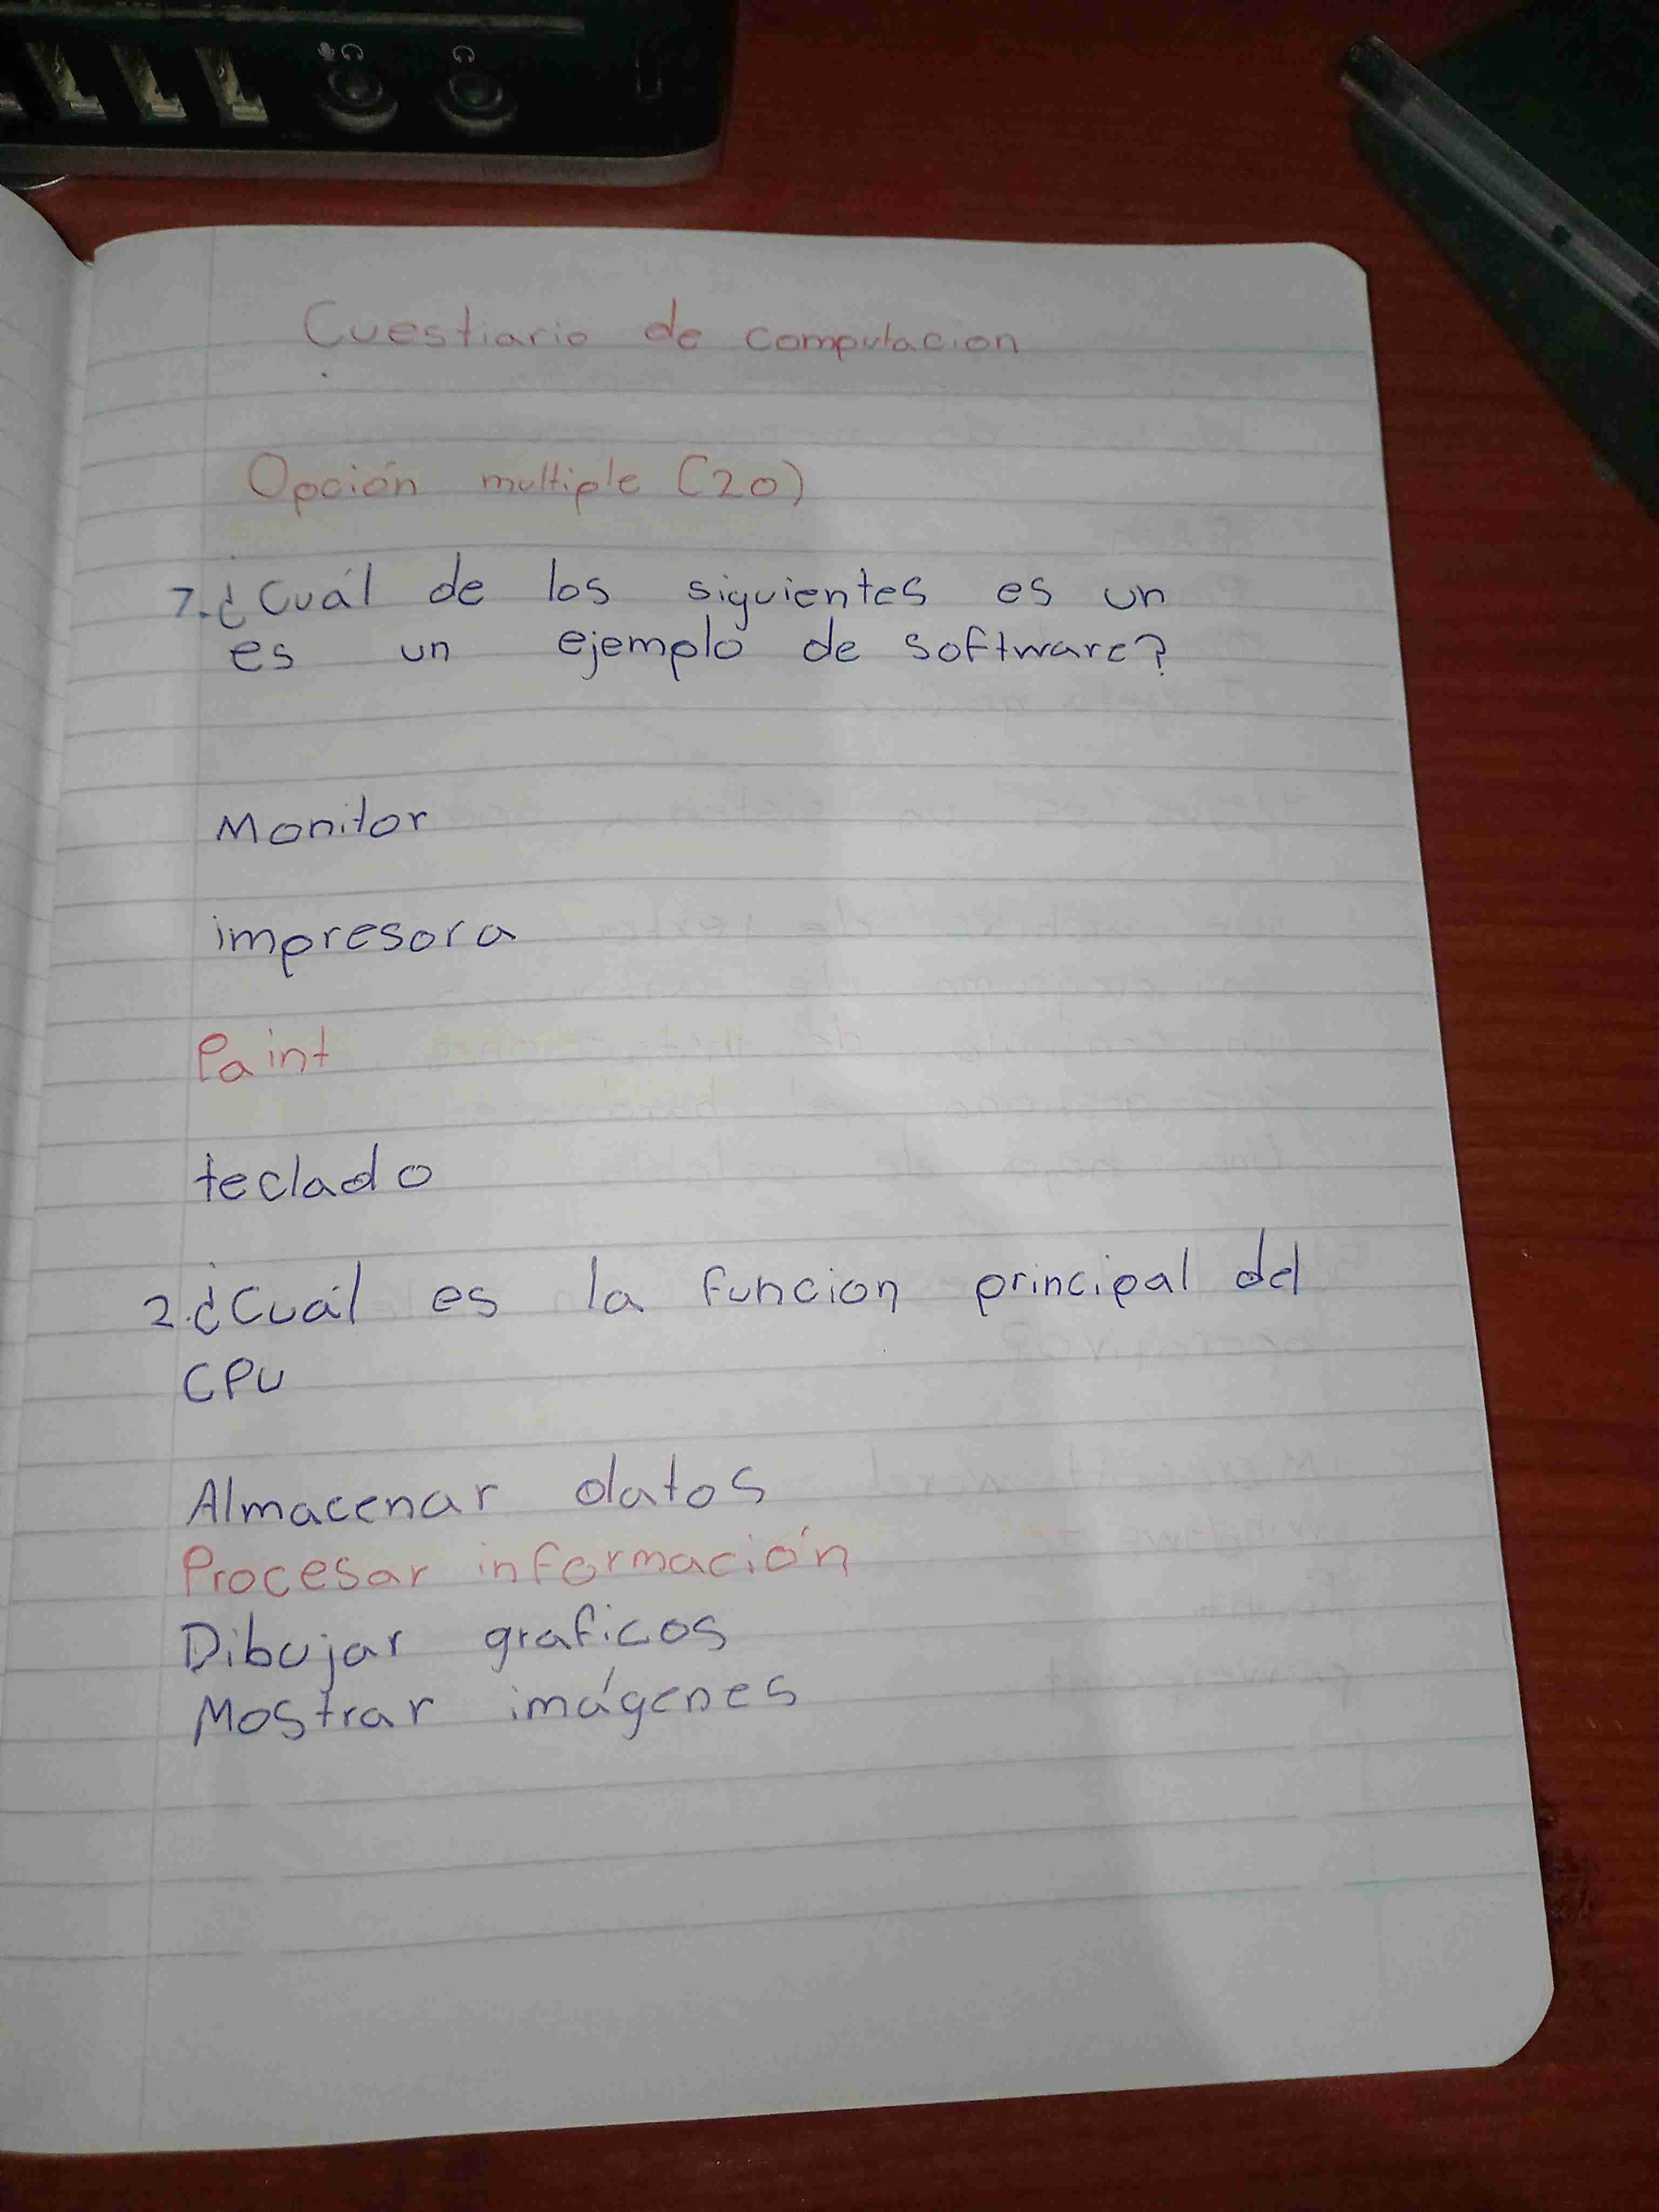 Cuestiario de computacion
Opción multiple (20)
1.¿Cuál de los siguientes es un
es un ejemplo de software?
Monitor
impresora
Paint
teclado
2.¿Cuál es la funcion principal del
CPU
Almacenar datos
Procesar información
Dibujar graficos
Mostrar imágenes